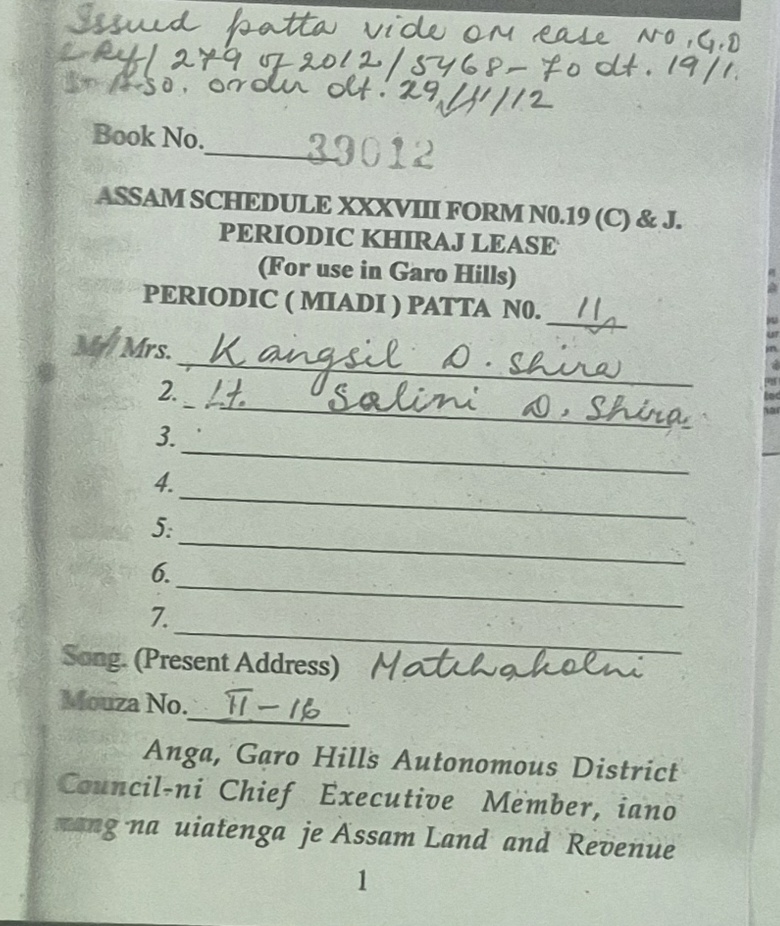 Issued patta vide OM case No. G.D
279 of 2012/5468-70 dt. 19/1
order dt. 29/11/12
Book No. 39012
ASSAM SCHEDULE XXXVIII FORM N0.19 (C) & J.
PERIODIC KHIRAJ LEASE
(For use in Garo Hills)
PERIODIC ( MIADI ) PATTA N0. 11
Mr/ Mrs. Kangsil D. Shira
2. Lt. Salini D. Shira
3.
4.
5:
6.
7.
Song. (Present Address) Matchakolni
Mouza No. II-16
Anga, Garo Hills Autonomous District
Council-ni Chief Executive Member, iano
mang na uiatenga je Assam Land and Revenue
1